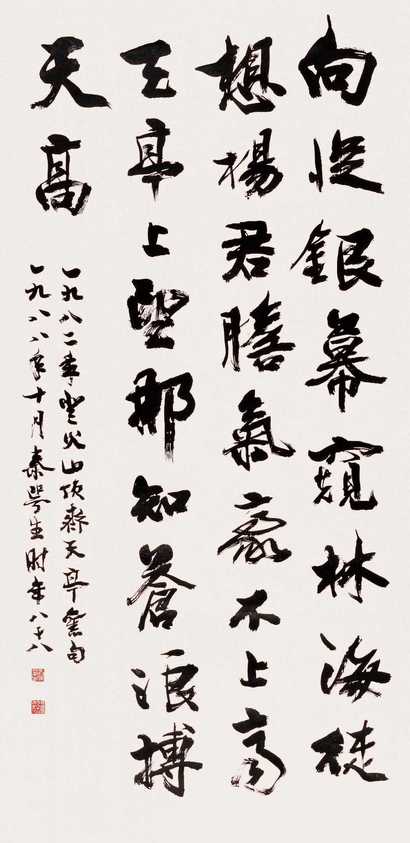 向從銀幕窺林海徒
想楊君膽氣豪不上高
天亭上望那知蒼浪搏
天高
一九八二年登火山頂齊天亭舊句
一九八八年十月秦咢生時年八十八